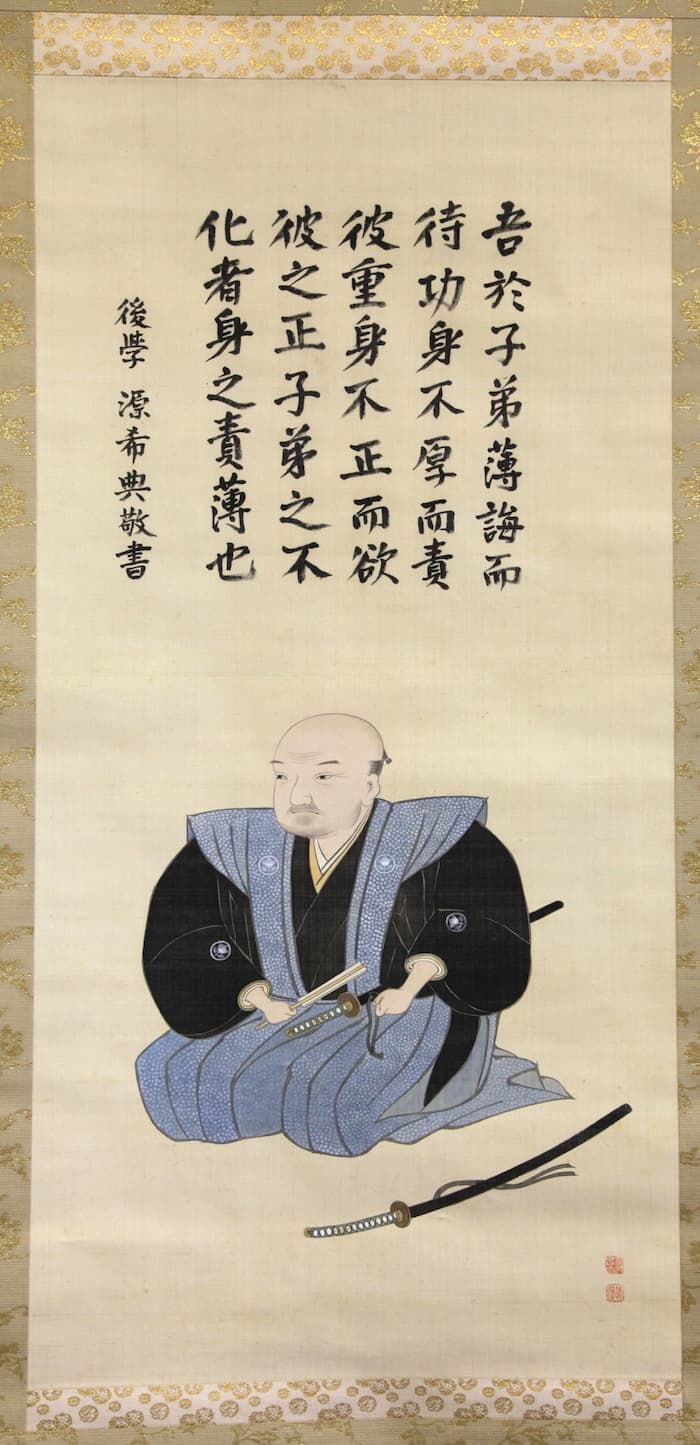 吾於子弟薄誨而
待功身不厚而責
彼重身不正而欲
彼之正子弟之不
化者身之責薄也
後学 源希典敬書